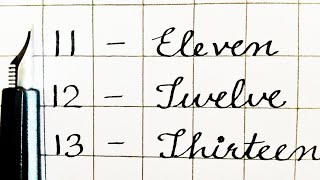 11 - Eleven
12 - Twelve
13 - Thirteen